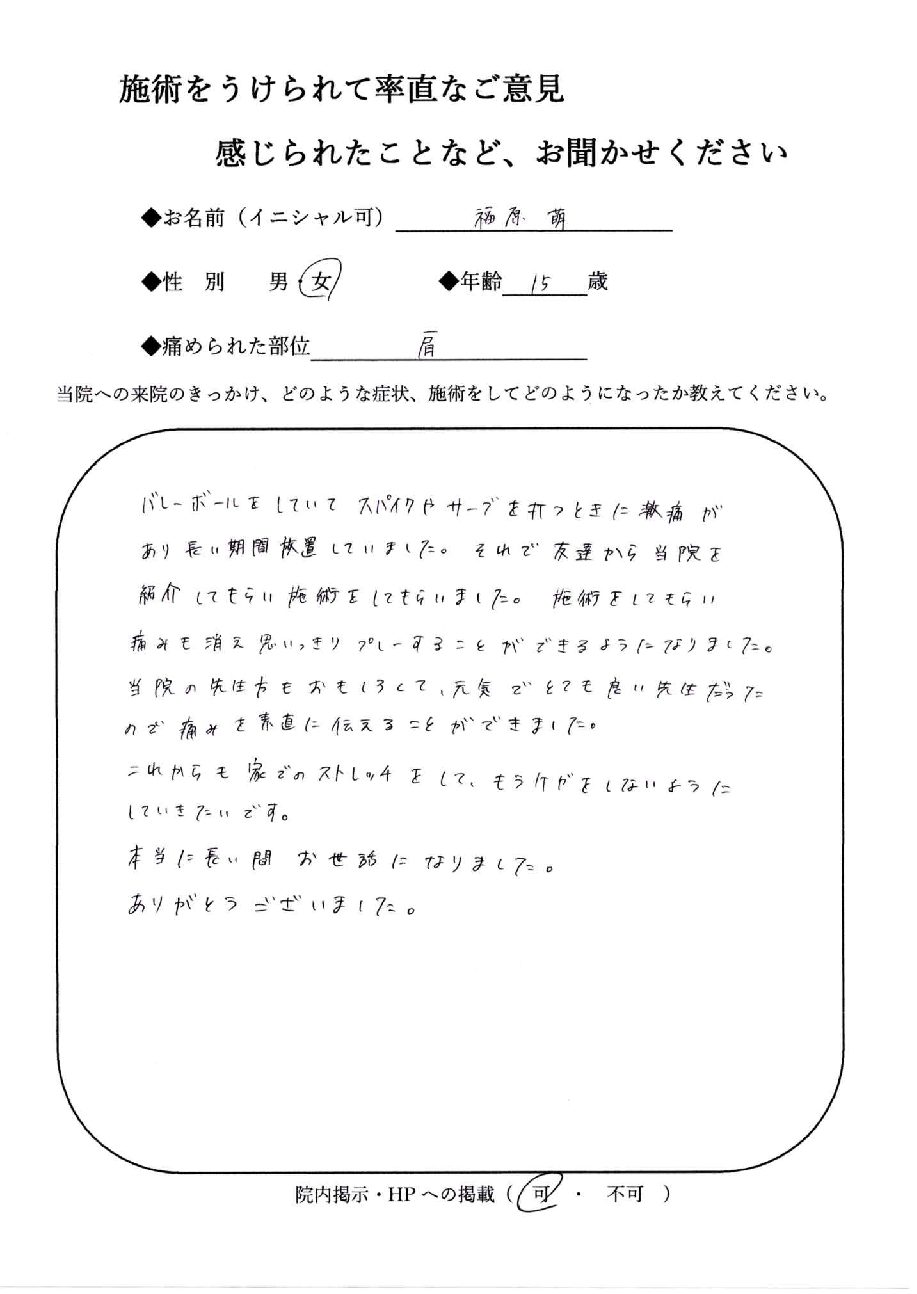 施術をうけられて率直なご意見
感じられたことなど、お聞かせください
◆お名前（イニシャル可） 福原 萌
◆性 別 男・女 ◆年齢 15 歳
◆痛められた部位 肩
当院への来院のきっかけ、どのような症状、施術をしてどのようになったか教えてください。
バレーボールをしていて スパイクや サーブを打つときに激痛が
あり長い期間放置していました。 それで友達から当院を
紹介してもらい施術をしてもらいました。 施術をしてもらい
痛みも消え思いっきりプレーすることができるようになりました。
当院の先生方もおもしろくて、元気でとても良い先生だった
ので痛みを素直に伝えることができました。
これからも家でのストレッチをして、もうケガをしないように
していきたいです。
本当に長い間 お世話になりました。
ありがとうございました。
院内掲示・HPへの掲載（ 可 ・ 不可 ）